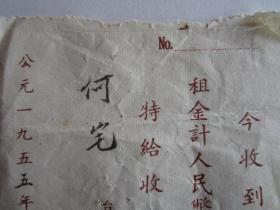 No.
今收到
租金計人民幣
特給收
何宅
公元一九五五年